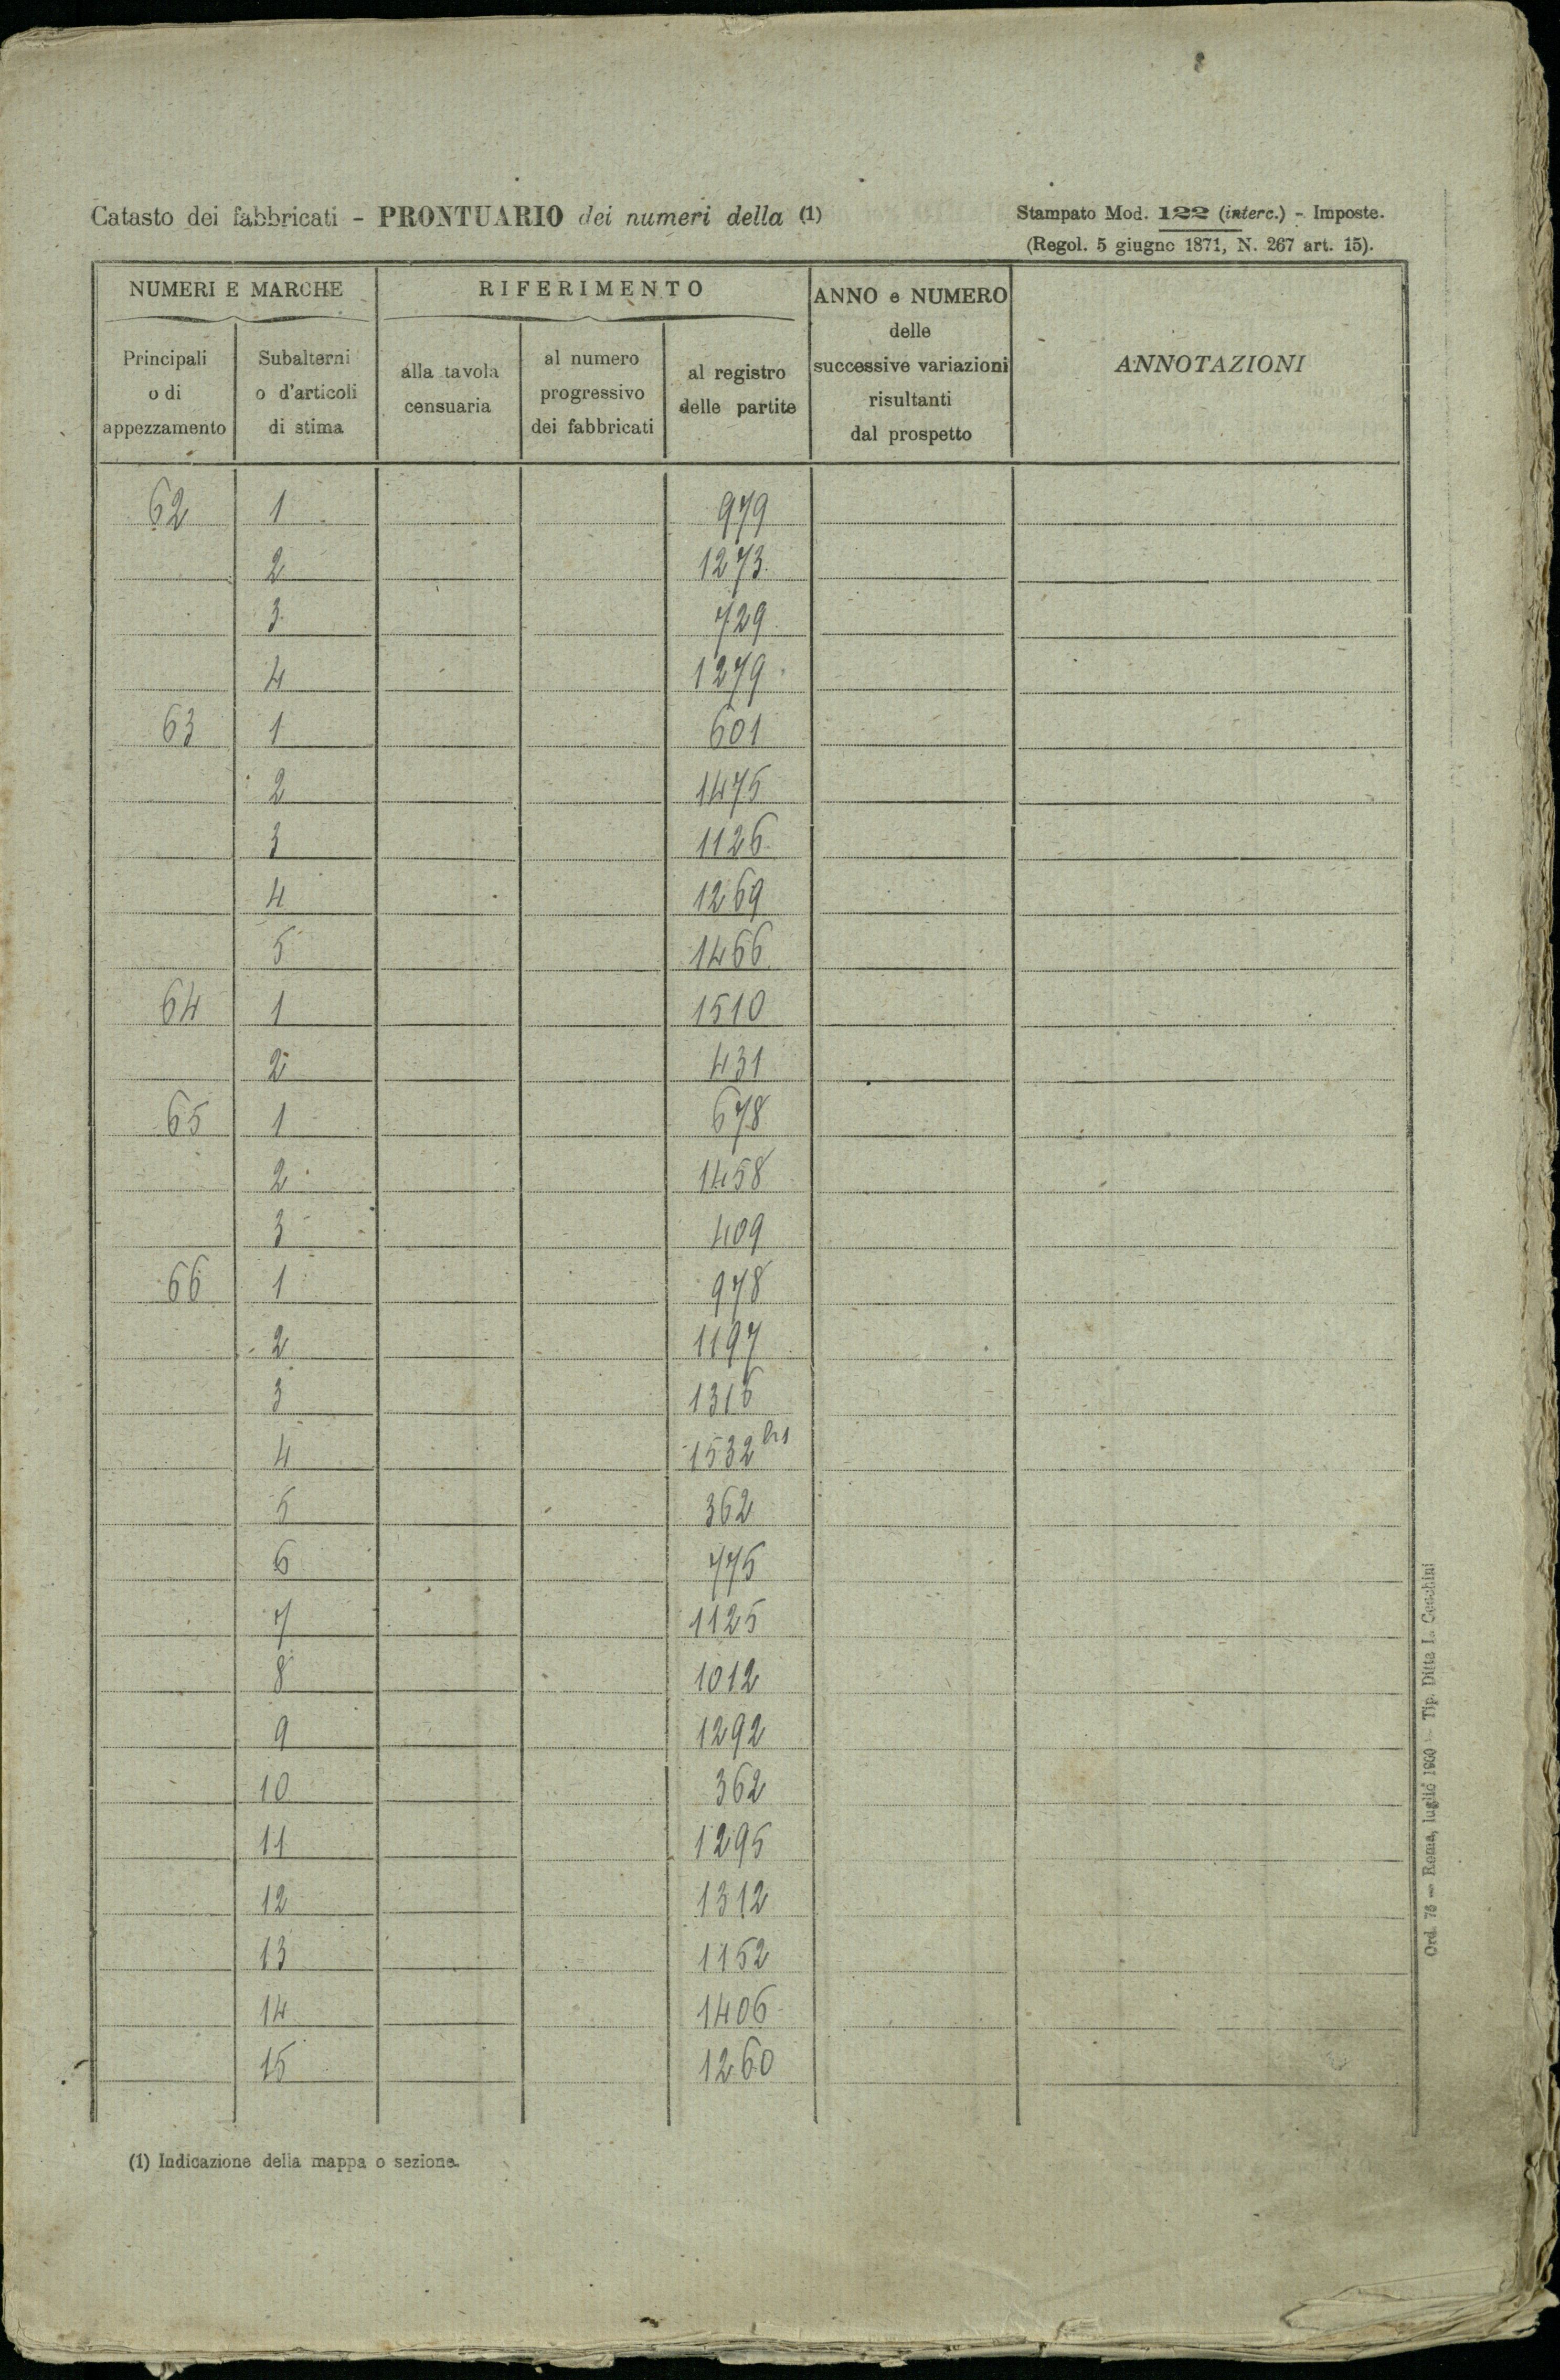 Catasto dei fabbricati - PRONTUARIO dei numeri della (1)
Stampato Mod. 122 (interc.) - Imposte.
(Regol. 5 giugno 1871, N. 267 art. 15).
NUMERI E MARCHE
RIFERIMENTO
ANNO e NUMERO
delle
successive variazioni
risultanti
dal prospetto
ANNOTAZIONI
Principali
o di
appezzamento
Subalterni
o d'articoli
di stima
alla tavola
censuaria
al numero
progressivo
dei fabbricati
al registro
delle partite
62 1 979
2 1273
3 729
4 1279
63 1 601
2 1475
3 1126
4 1269
5 1466
64 1 1510
2 431
65 1 678
2 1458
3 409
66 1 978
2 1197
3
4 1532 bis
5 362
6 775
7 1125
8 1012
9 1292
10 362
11 1295
12 1312
13 1152
14 1406
15 1260
(1) Indicazione della mappa o sezione.
Ord. 76 — Roma, luglio 1900 - Tip. Ditta L. Cecchini